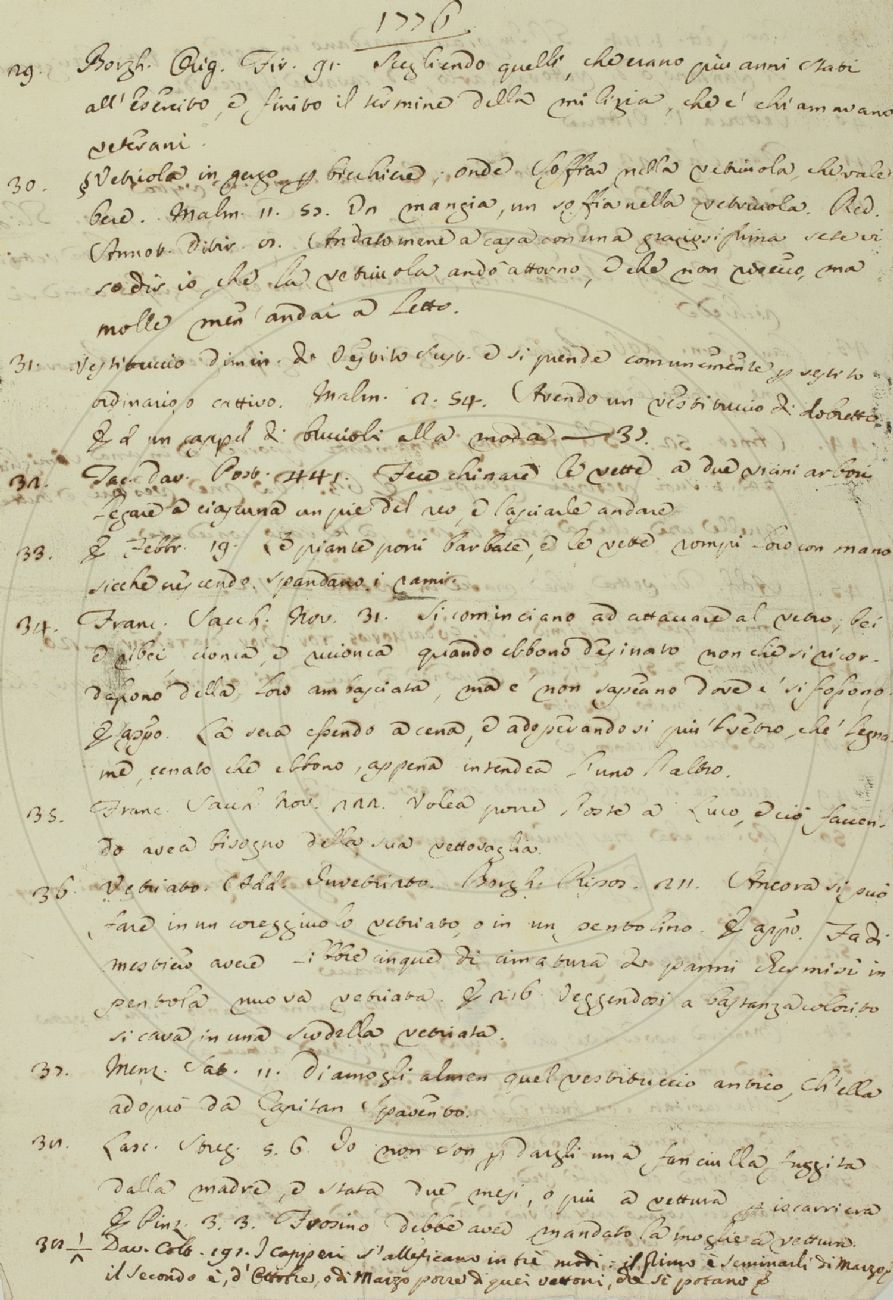 1776
29. Borgh. Orig. Fir. 91. Scegliendo quelli, che erano più anni stati
all'esercito, e finito il termine della milizia, che e' chiamavano
veterani.
30. § Vetriola in gergo p bicchiere, onde Soffiar nella vetriuola, che vale
bere. Malm. 11. 52. Un mangia, un soffia nella vetriuola. Red.
Annot. Ditir. Andatomene a casa con una graziosissima sete vi
so dir io, che la vetriuola andò attorno, e che non secco, ma
molle men' andai a letto.
31. Vestituccio dimin. di Vestito Sust. e si prende comunemente p vestito
ordinario, o cattivo. Malm. 2. 54. Avendo un vestituccio di dobretto
E d'un cappel di buccioli alla moda — 37.
32. Tac. Dav. Post. 441. Fece chinare le vette a due vicini arbori
legare a ciascuna un piè del reo, e lasciarle andare
33. E Febbr. 19. Le piante poni barbate, e le vette rompi loro con mano
sicche crescendo spandano i rami.
34. Franc. Sacch. Nov. 31. Si cominciano ad attaccare al vetro, bei
e ribei, cionca, e ricionca, quando ebbono desinato non che si ricor-
dassono della loro ambasciata, ma e' non sapeano dove e' si fossono.
E appo. La sera essendo a cena, e adoperandosi più 'l vetro, che 'l legna-
me, cenato che ebbono, appena intendea l'uno l'altro.
35. Franc. Sacch. Nov. Volea porre l'oste a Luco, e ciò facen-
do avea bisogno della sua vettovaglia.
36. Vetriato. Add. Invetriato. Borgh. Ripos. 211. Ancora si può
fare in un coreggiuolo vetriato, o in un pentolino. E appo. Fa di
mestiero avere libbre cinque di cimatura di panni chermisi in
pentola nuova vetriata. E 216. Veggendosi a bastanza colorito
si cava in una scodella vetriata.
37. Menz. Sat. 11. Diamogli almen quel vestituccio antico, Ch'ella
adoprò da Capitan Spavento.
38. Lasc. Streg. 5. 6. Io non son p dargli una fanciulla fuggita
dalla madre, e stata due mesi, o più a vettura p iscarriera
E Pinz. 3. 3. Frosino debbe aver mandato la moglie a vettura.
38 1/2 Dav. Colt. 191. I capperi s'allessicano in tre modi: il primo è seminarli di Marzo
il secondo è, d'Ottobre, o di Marzo porre di quei vettoni, che si potano E